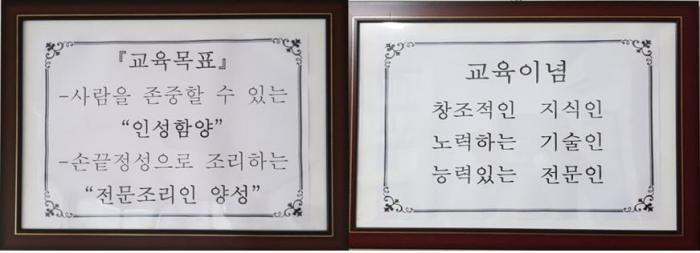 『교육목표』
-사람을 존중할 수 있는
“인성함양”
-손끝정성으로 조리하는
“전문조리인 양성”
교육이념
창조적인 지식인
노력하는 기술인
능력있는 전문인